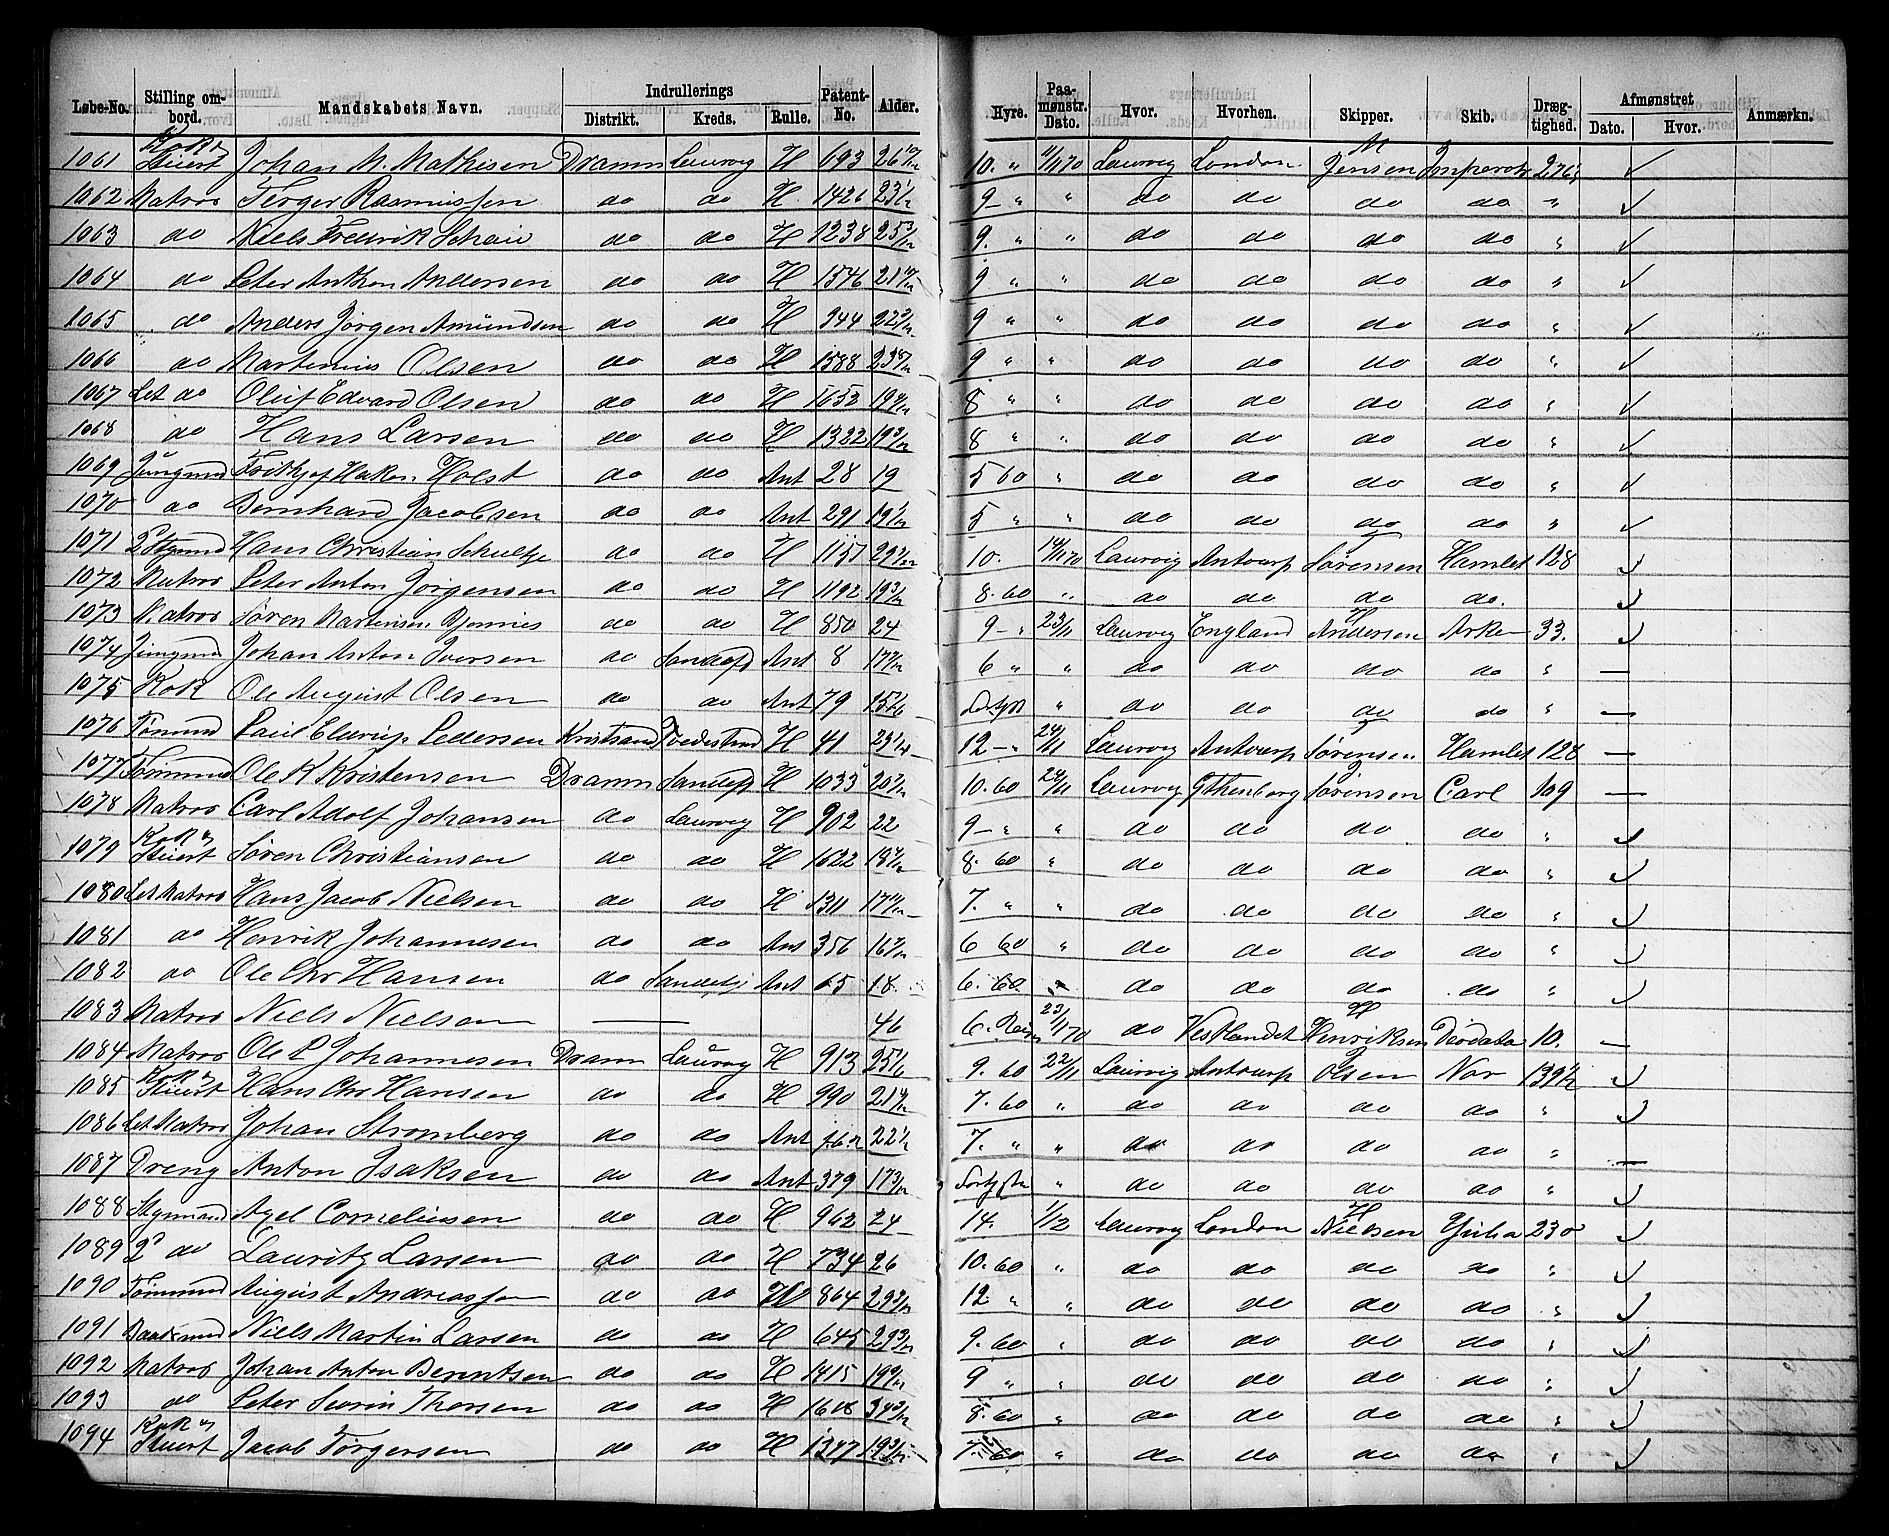 Løbe-No. Stilling ombord. Mandskabets Navn. Indrullerings Distrikt. Kreds. Rulle. Patent-No. Alder. Hyre. Paamønstr. Dato. Hvor. Hvorhen. Skipper. Skib. Drægtighed. Afmønstret Dato. Hvor. Anmærkn.
1061 Kok & Stuert Johan M. Mathisen Dramn Laurvig H 693 10. " Laurvig London M Jensen
1062 Matros Terger Rasmussen do do H. 1426 9 - " " do do do do "
1063 do Niels Fredrik do do H 1238 9. " " do do do do "
1064 do Peter Anthon Andersen do do H 1546 9 " " do do do do "
1065 do Anders Jørgen Amundsen do do H 944 9 " " do do do do "
1066 do Martinius Olsen do do H 1588 9 " " do do do do "
1067 Let do Oluf Edvard Olsen do do H 1653 8 " " do do do do "
1068 do Hans Larsen do do H 1322 8 " " do do do do "
1069 Jungmd Frithjof Hakon Holst do do Ant 28 19 5 60 " do do do do "
1070 do Bernhard Jacobsen do do Ant 291 5 " " do do do do "
1071 Hans Christian Schultze do do H 1151 10. Laurvig Antwerp Sørensen Hamlet 128
1072 Matros Peter Anton Jørgensen do do H 1192 8. 60 " do do do do.
1073 Matros Søren Martinsen do do H 850 24 9 - " 23/11 Laurvig England H Andersen Arken 33.
1074 Jungmd Johan Anton Iversen do Sandefd Ant 8 6 " " do do do do " —
1075 Kok Ole August Olsen do do Ant 79 " do do do do " —
1076 Tømmd Paul Ellerup Pedersen Kristsand Tvedestrnd H 41 12 - " 24/11 Laurvig Antwerp Sørensen Hamlet 128 —
1077 Tømmd Ole K Kristensen Dramn Sandefd H 1033 10. 60 24/11 Laurvig Gthenborg Sørensen Carl 109 —
1078 Matros Carl Adolf Johansen do Laurvig H 902 22 9 - " " do do do do "
1079 Kok & Stuert Søren Christiansen do do H 1622 8. 60 " do do do do "
1080 Let Matros Hans Jacob Nielsen do do H 1311 7. " " do do do do "
1081 do Henrik Johannesen do do Ant 356 6 60 " do do do do "
1082 do Ole Chr Hansen do Sandefj Ant 65 18. 6. 60 " do do do do "
1083 Matros Niels Nielsen — 46 6. 23/11 70 do Vestlandet H Henriksen Deodata 10. —
1084 Matros Ole L Johannesen Dramn Laurvig H 913 9. 60 22/11 Laurvig Antwerp Olsen Nor 139½
1085 Kok & Stuert Hans Chr Hansen do do H 990 7. 60 " do do do do "
1086 Let Matros Johan Stromberg do do Ant 7. " " do do do do " —
1087 Dreng Anton Isaksen do do Ant 379 " do do do do "
1088 Styrmand Axel Corneliusen do do H 962 24 14. 1/12 Laurvig London H Nielsen Julia 230
1089 2d do Lauritz Larsen do do H 734 26 10. 60 " do do do do "
1090 Tømmd August Andreassen do do H 864 12 " " do do do do "
1091 Baadsmd Niels Martin Larsen do do H 645 9. 60 " do do do do "
1092 Matros Johan Anton Berntsen do do H 1415 9 " " do do do do "
1093 do Peter Severin Thorsen do do H 8. 60 " do do do do "
1094 Kok & Stuert Jacob Torgersen do do H 1347 7. 60 " do do do do "